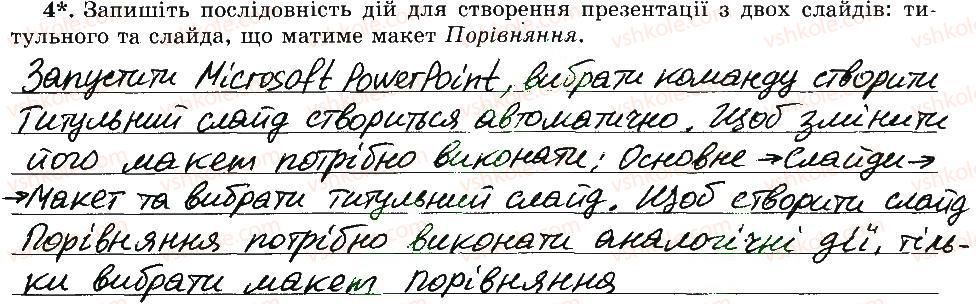 4*. Запишіть послідовність дій для створення презентації з двох слайдів: ти-
тульного та слайда, що матиме макет Порівняння.
Запустити Microsoft PowerPoint, вибрати команду створити
Титульний слайд створиться автоматично. Щоб змінити
його макет потрібно виконати: Основне →Слайди→
→Макет та вибрати титульний слайд. Щоб створити слайд
Порівняння потрібно виконати аналогічні дії, тіль-
ки вибрати макет порівняння